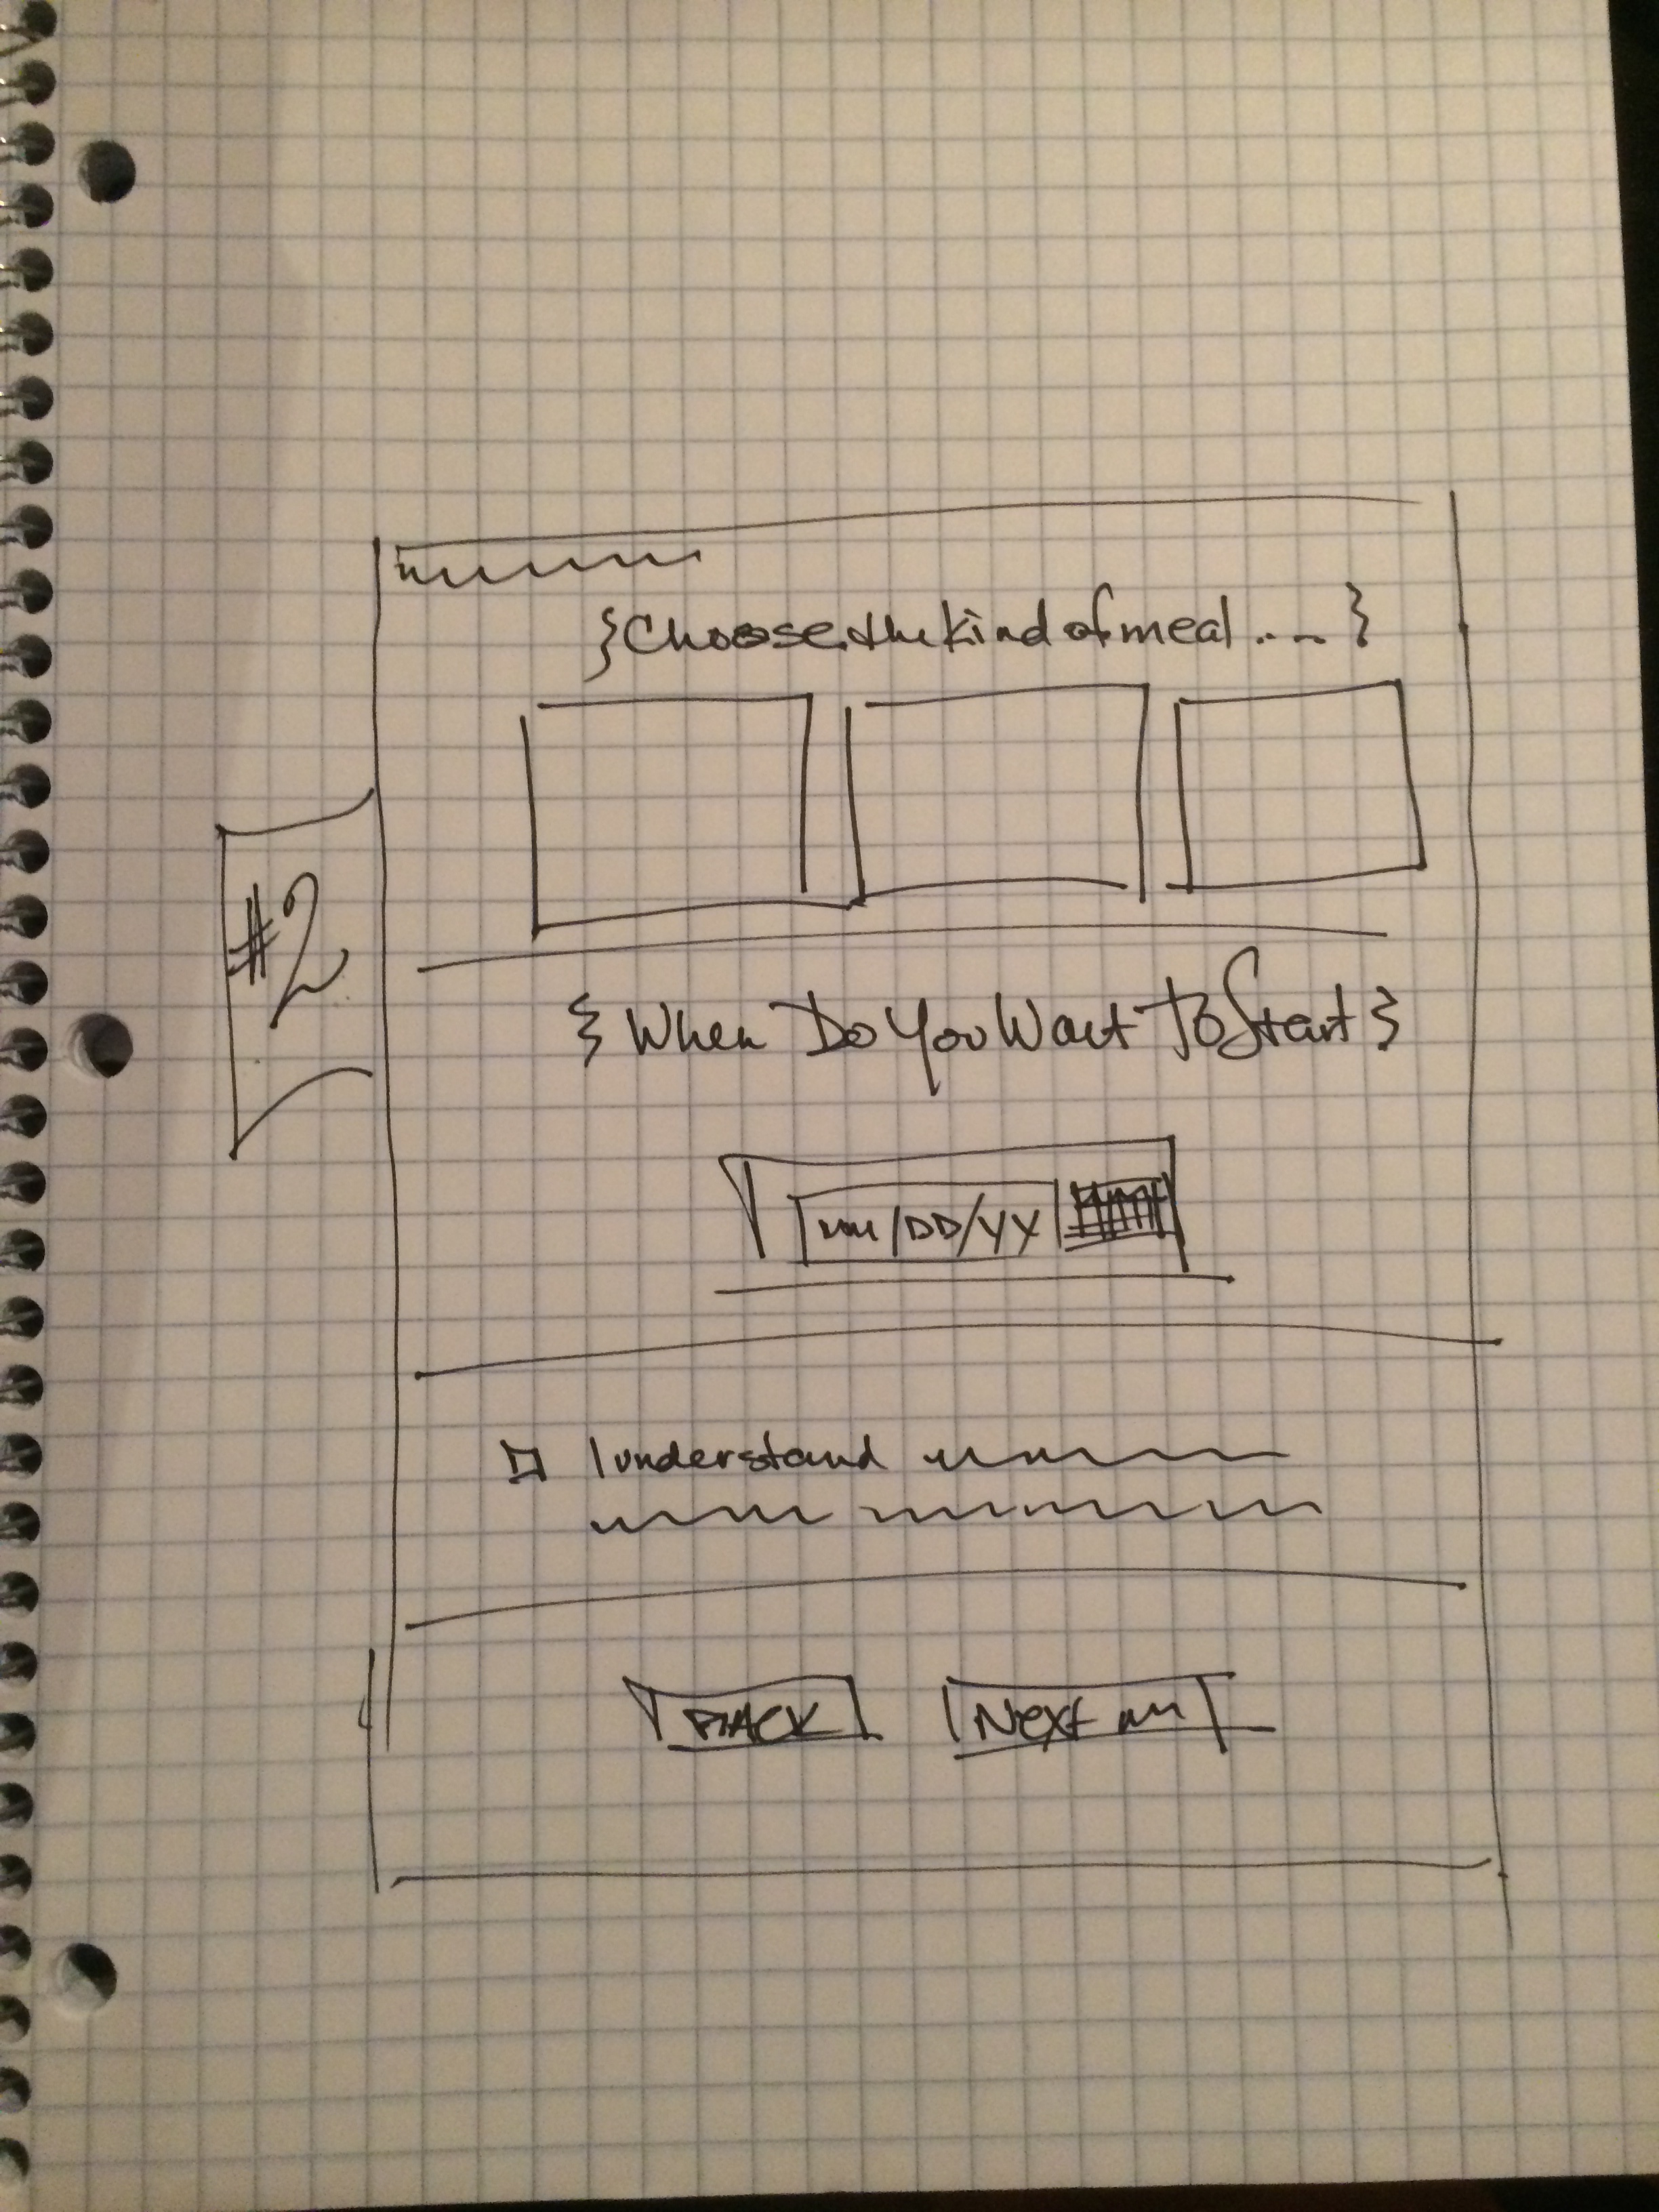 {Choose the kind of meal ... }
#2
{ When Do You Want To Start }
mm/DD/YY
I understand
BACK
Next